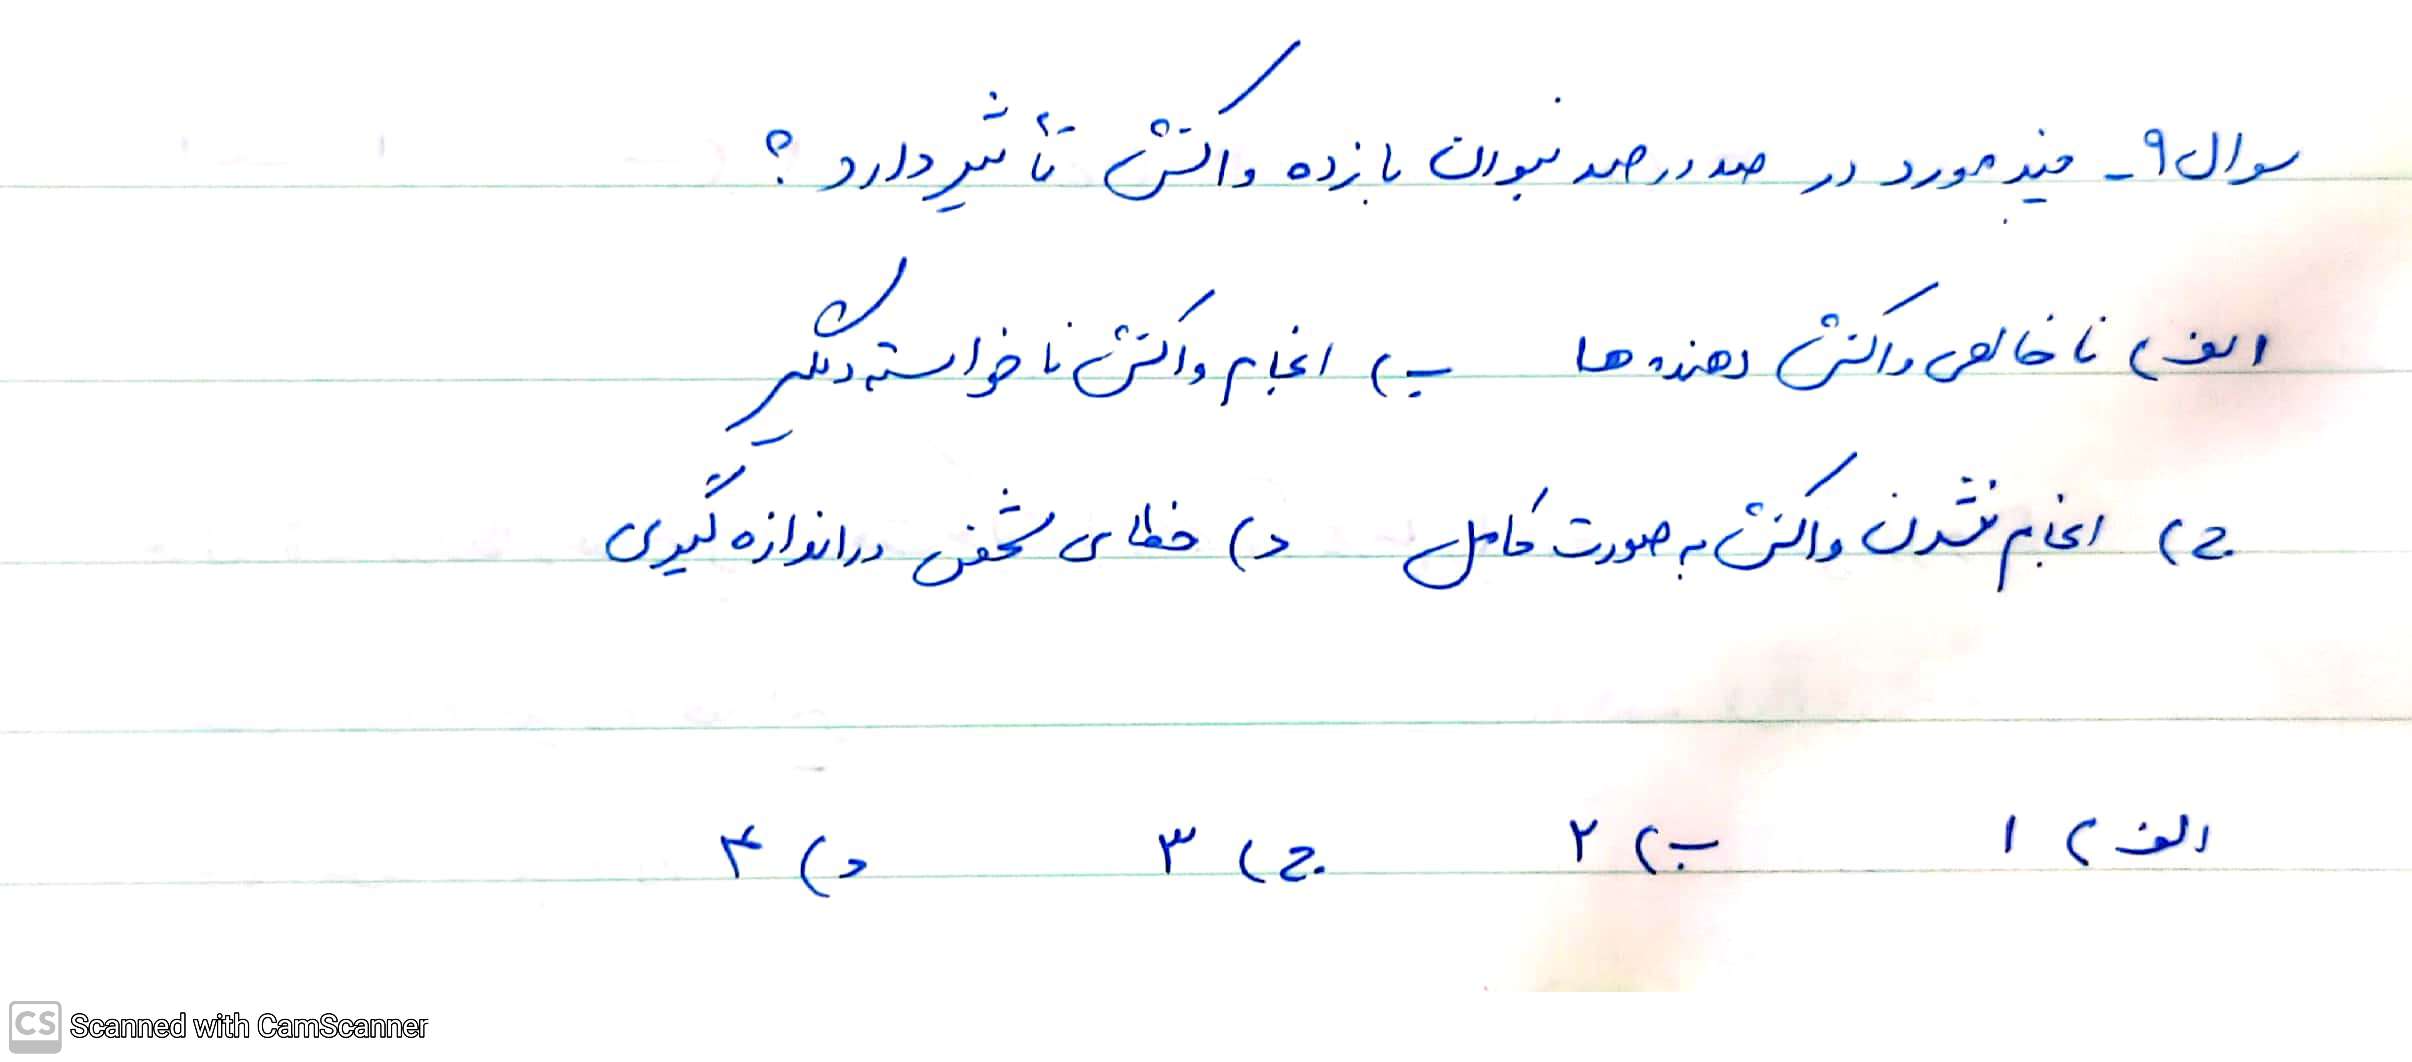 سوال ۹ـ چند مورد در صد درصد نبودن بازده واکنش تأثیر دارد ؟
الف) ناخالصی واکنش دهنده ها ب) انجام واکنش ناخواسته دیگر
ج) انجام نشدن واکنش به صورت کامل د) خطا ی شخص در اندازه گیری
الف) ۱ ب) ۲ ج) ۳ د) ۴
CS Scanned with CamScanner